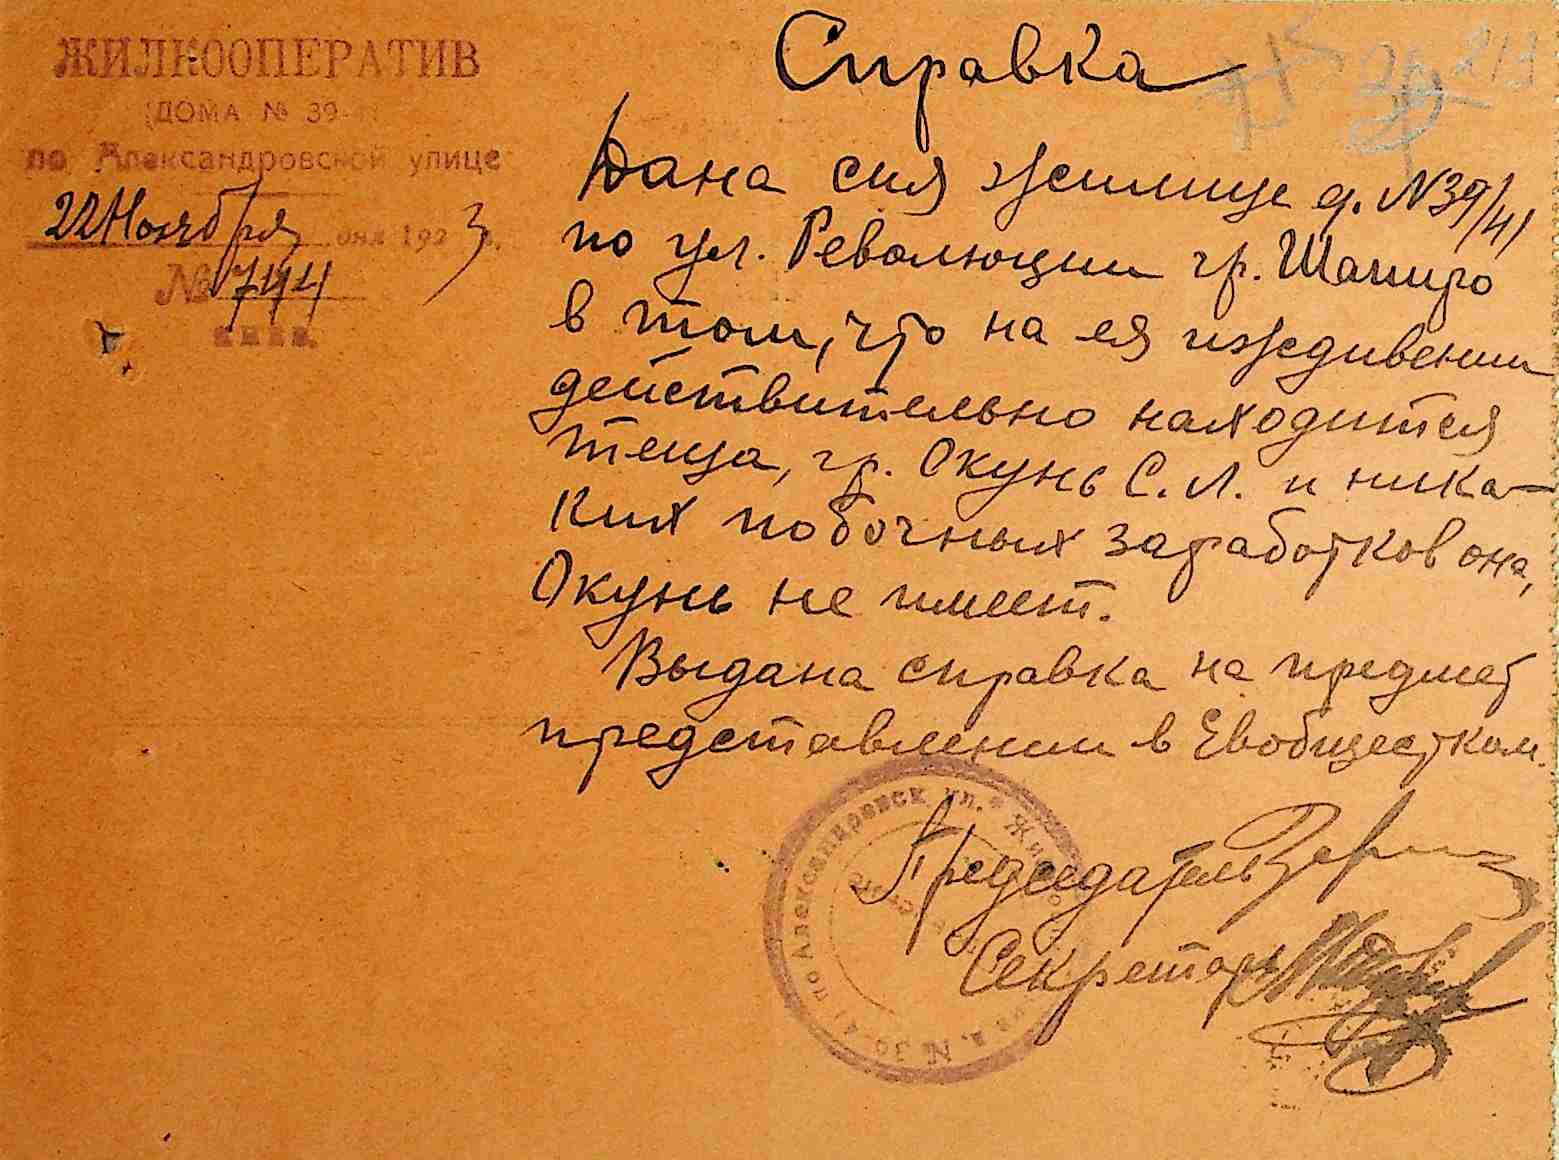 ЖИЛКООПЕРАТИВ
ДОМА № 39-41
по Александровской улице
22 Ноября дня 1923 г.
№ 744
Справка
Дана сия жилице д. N39/41
по ул. Революции гр. Шапиро
в том, что на ея иждивении
действительно находится
теща, гр. Окунь С. Л. и ника-
ких побочных заработков она,
Окунь не имеет.
Выдана справка на предмет
представлении в Евобщестком.
Председатель
Секретарь
по Александровск ул.